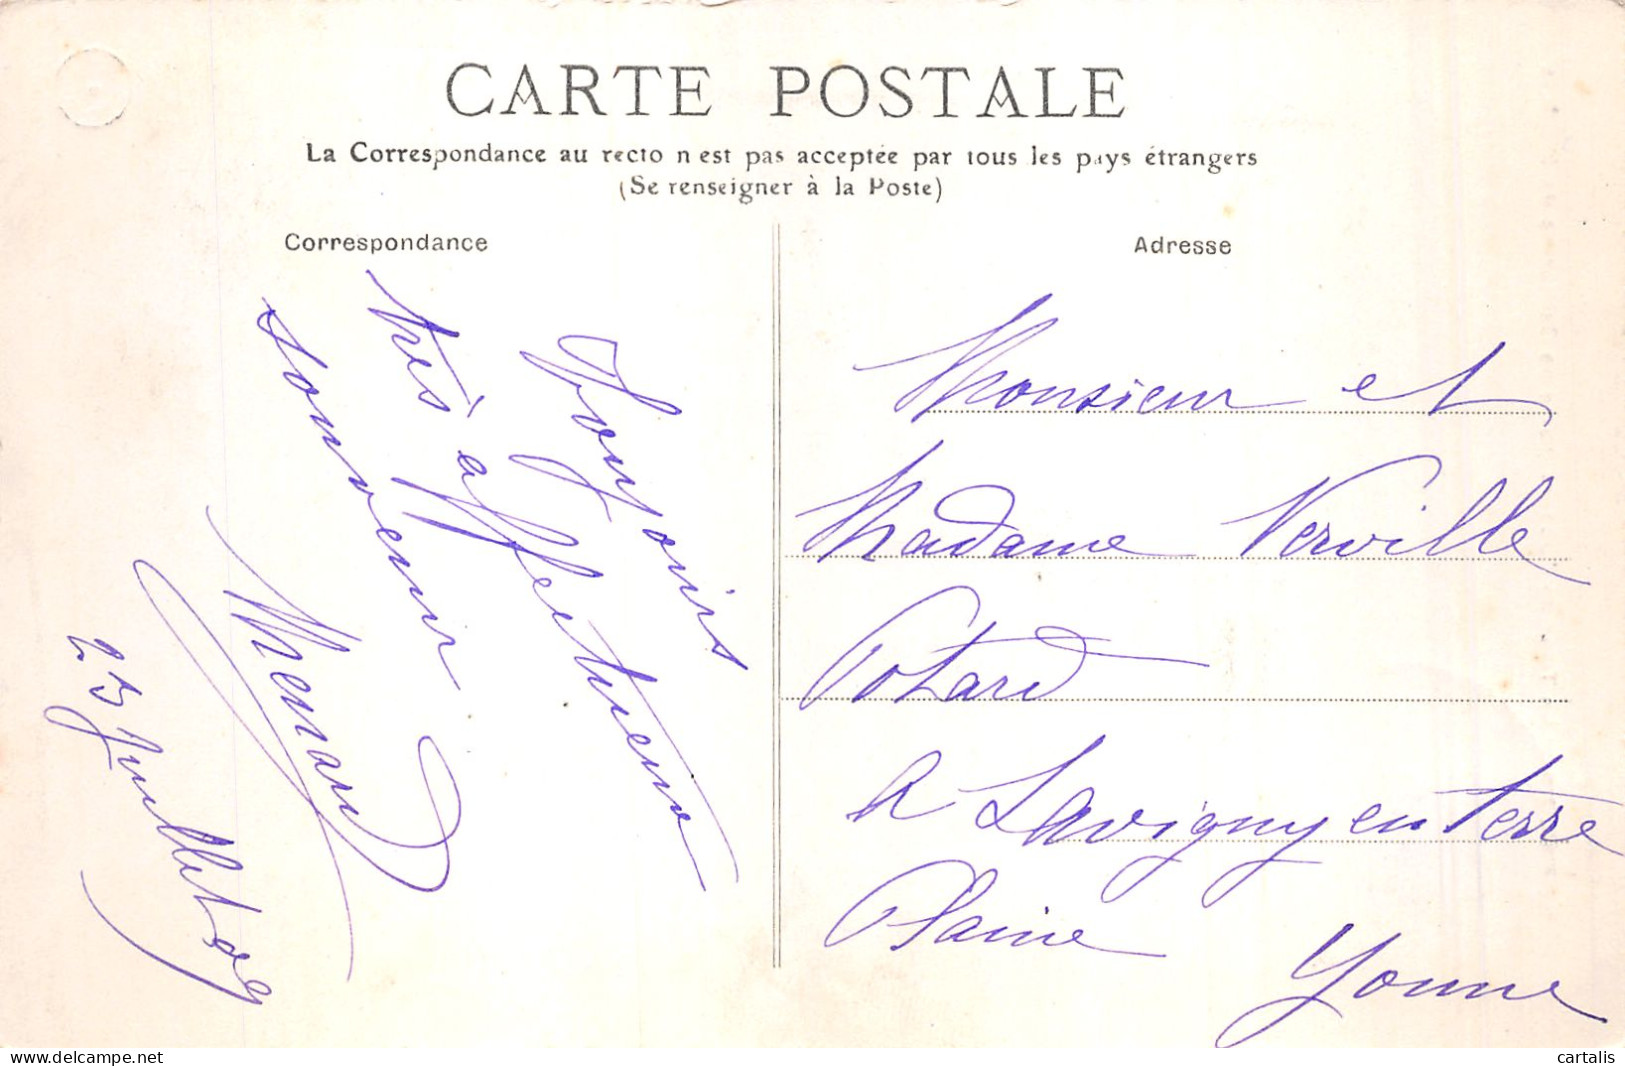 CARTE POSTALE
La Correspondance au recto n'est pas acceptée par tous les pays étrangers
(Se renseigner à la Poste)
Correspondance
Toujours
très affectueux
souvenir
Menard
25 Juillet 09
Adresse
Monsieur et
Madame Verville
Potard
a Lavigny en Terre
Plaine Yonne
delcampe.net
cartalis